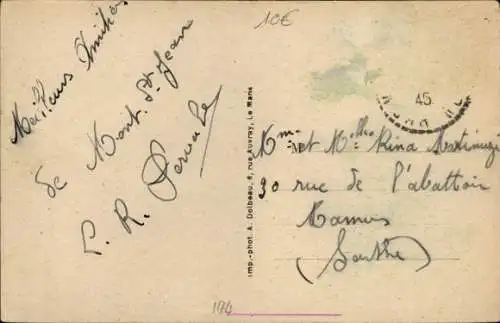 10€
Meilleurs Amitiés
de Mont St. Jean
P. R.
Imp.-phot. A. Dolbeau, 8, rue Auvray, Le Mans
45
Mme et Melle Rina
30 rue de l'abattoir
Mamers
(Sarthe)
194